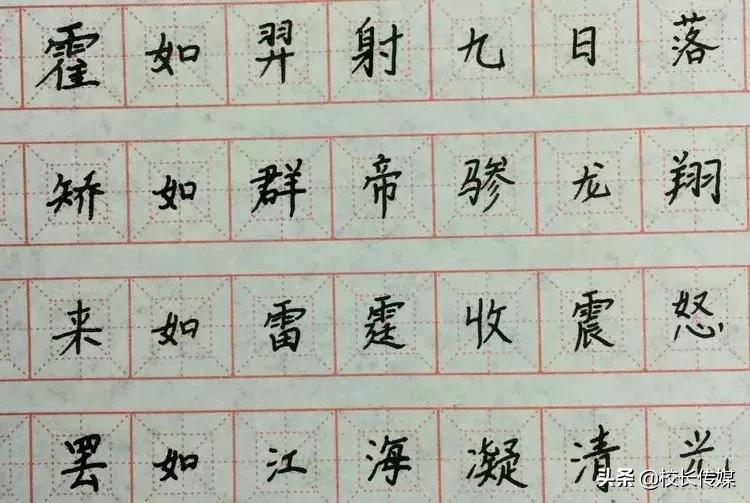 霍如羿射九日落
矫如群帝骖龙翔
来如雷霆收震怒
罢如江海凝清光
头条 @校长传媒